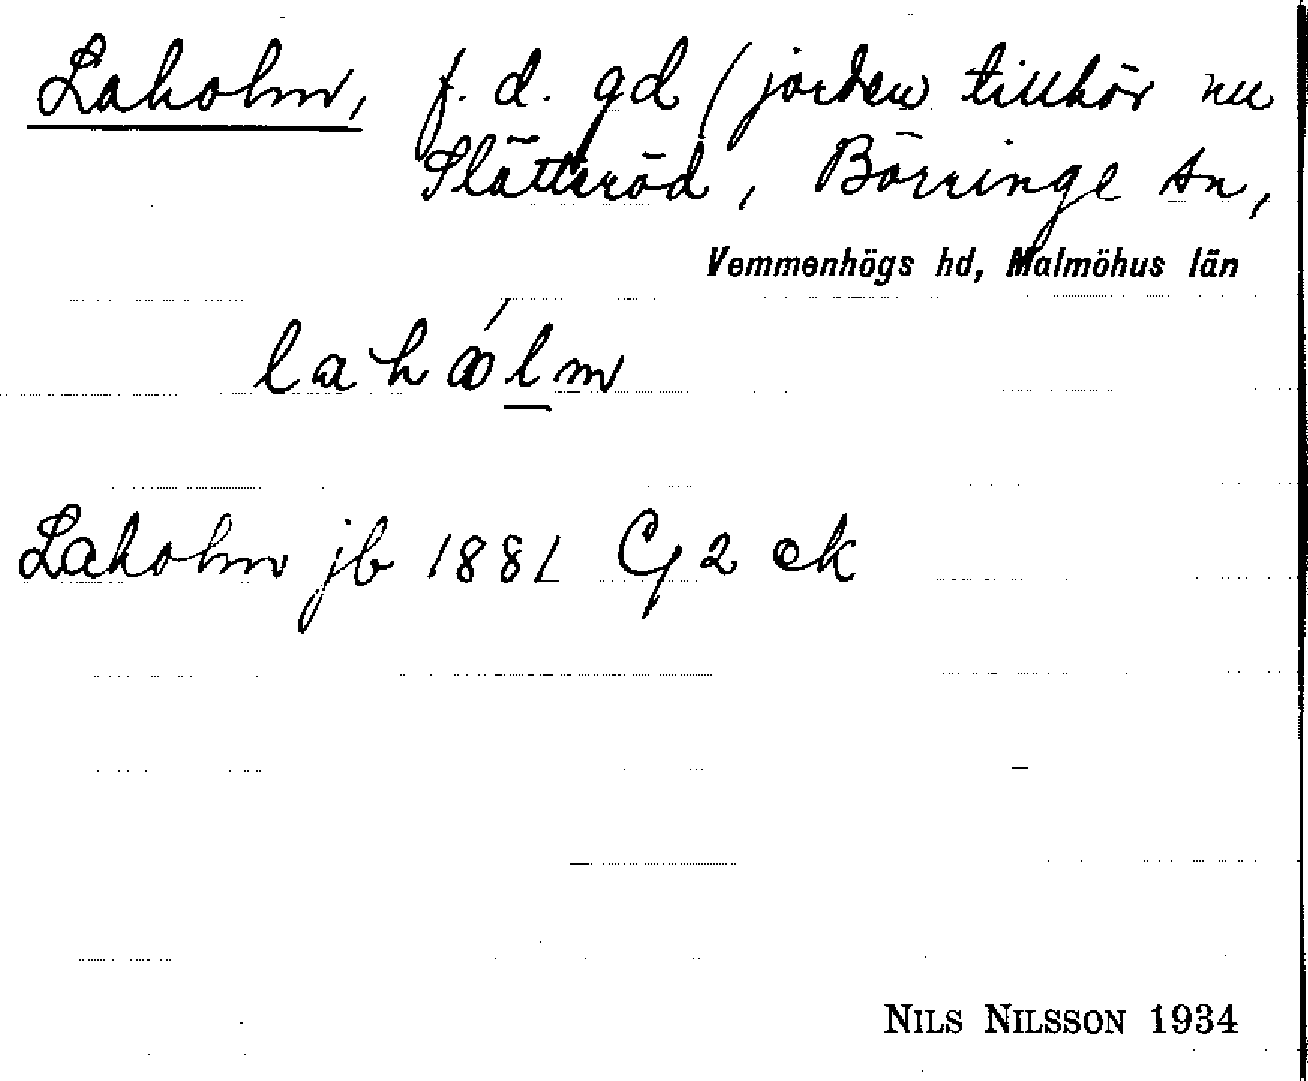 Laholm, f. d. gd (jorden tillhör nu
Slättaröd, Börringe sn,
Vemmenhögs hd, Malmöhus län
lahålm
Laholm jb 1881 C, 2 ek
NILS NILSSON 1934